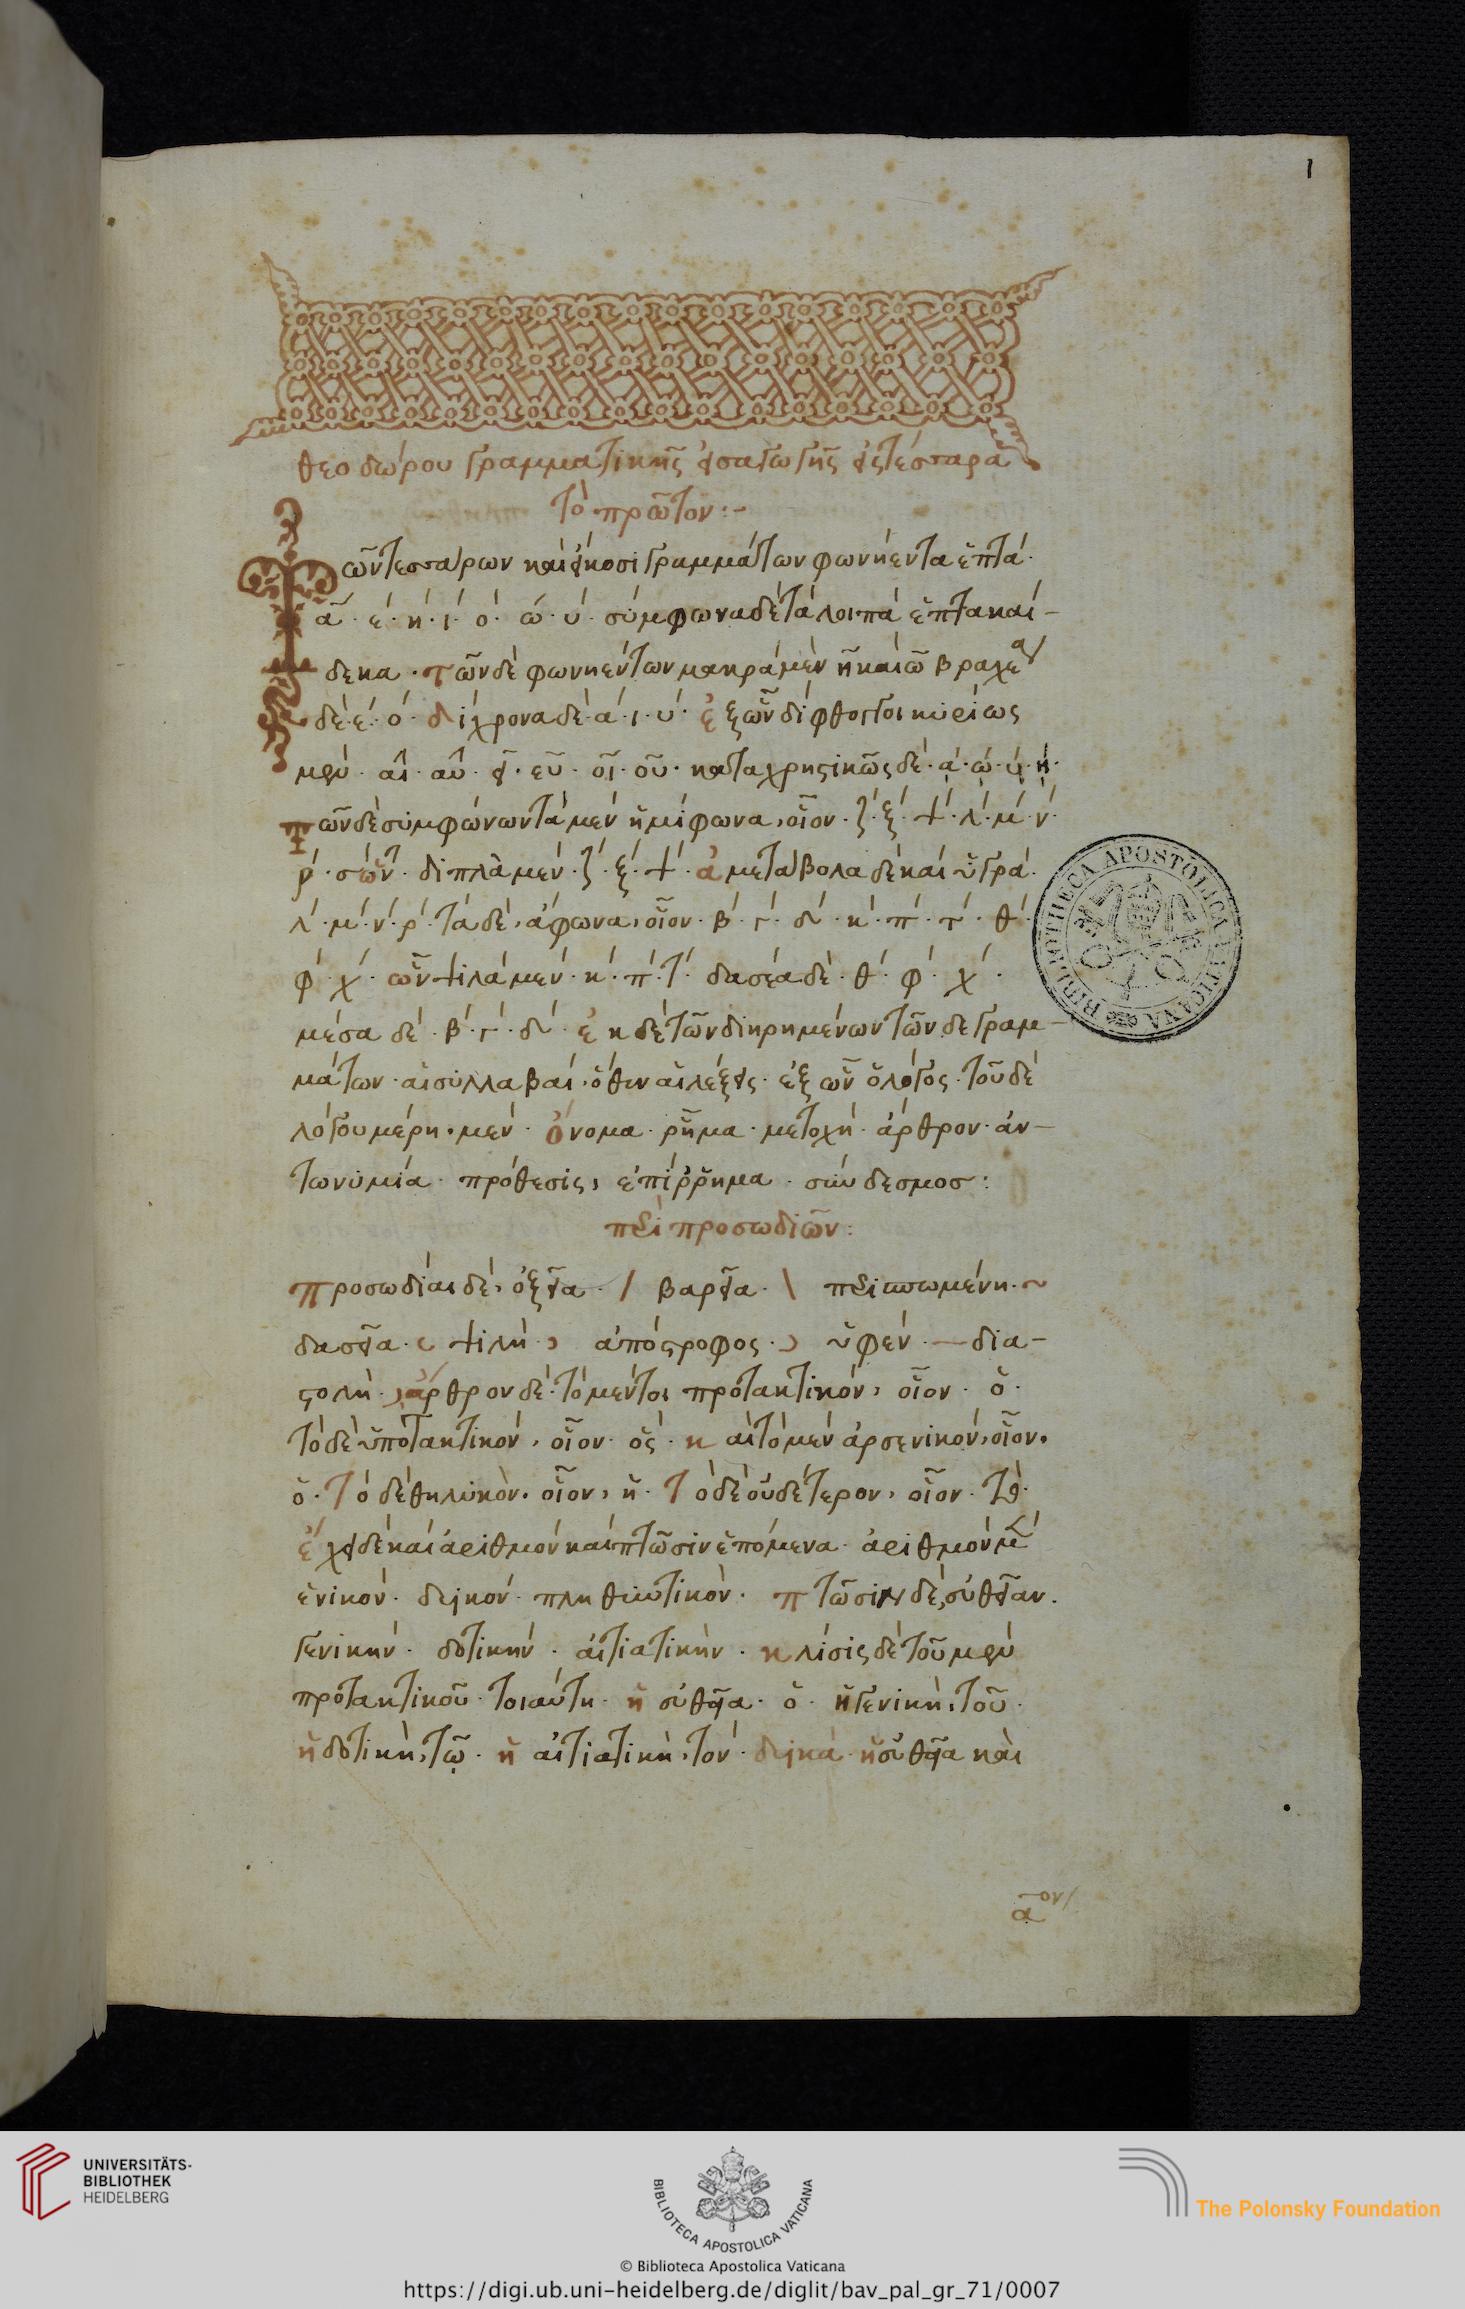 1
θεοδώρου γραμματικῆς εἰσαγωγῆς εἰς τέσσαρα
τὸ πρῶτον:-
Τῶν τεσσάρων καὶ εἴκοσι γραμμάτων φωνήεντα ἑπτά·
α· ε· η· ι· ο· ω· υ· σύμφωνα δὲ τὰ λοιπὰ ἑπτακαί-
δεκα· τῶν δὲ φωνηέντων μακρὰ μὲν η καὶ ω βραχέα
δὲ ε· ο· δίχρονα δὲ α· ι· υ· ἐξ ὧν δίφθογγοι κυρίως
μὲν· αι· αυ· ει· ευ· οι· ου· καταχρηστικῶς δὲ· ᾳ· ῳ· υι· ῃ·
τῶν δὲ συμφώνων τὰ μὲν ἡμίφωνα, οἷον· ζ· ξ· ψ· λ· μ· ν·
ρ· σ ὧν· διπλὰ μὲν· ζ· ξ· ψ· ἀμετάβολα δὲ καὶ ὑγρά·
λ· μ· ν· ρ· τὰ δὲ, ἄφωνα, οἷον· β· γ· δ· κ· π· τ· θ·
φ· χ· ὧν ψιλὰ μέν· κ· π· τ· δασέα δὲ· θ· φ· χ·
μέσα δὲ· β· γ· δ· ἐκ δὲ τῶν διῃρημένων τῶνδε γραμ-
μάτων· αἱ συλλαβαί, ὅθεν αἱ λέξεις· ἐξ ὧν ὁ λόγος· τοῦ δὲ
λόγου μέρη· μὲν· ὄνομα· ῥῆμα· μετοχή· ἄρθρον· ἀν-
τωνυμία· πρόθεσις, ἐπίρρημα· σύνδεσμος:
περὶ προσωδιῶν:
προσωδίαι δὲ, ὀξεῖα· / βαρεῖα· \ περισπωμένη· ~
δασεῖα· ψιλή· ἀπόστροφος· ὑφέν· δια-
στολή· ἄρθρον δὲ· τὸ μέντοι προτακτικόν, οἷον· ὁ·
τὸ δὲ ὑποτακτικόν, οἷον· ὅς· καὶ τὸ μὲν ἀρσενικόν, οἷον·
ὁ· τὸ δὲ θηλυκὸν· οἷον, ἡ· τὸ δὲ οὐδέτερον, οἷον· τό·
ἔχει δὲ καὶ ἀριθμὸν καὶ πτῶσιν ἑπόμενα· ἀριθμὸν μὲν
ἑνικόν· δυϊκόν· πληθυντικὸν· πτῶσιν δέ, εὐθεῖαν·
γενικήν· δοτικήν· αἰτιατικὴν· κλίσις δὲ τοῦ μὲν
προτακτικοῦ· τοιαύτη· ἡ εὐθεῖα· ὁ· ἡ γενικὴ, τοῦ·
ἡ δοτικὴ, τῷ· ἡ αἰτιατικὴ, τόν· δυϊκά· ἡ εὐθεῖα καὶ
αον
BIBLIOTHECA APOSTOLICA VATICANA
UNIVERSITÄTS-
BIBLIOTHEK
HEIDELBERG
BIBLIOTECA APOSTOLICA VATICANA
The Polonsky Foundation
© Biblioteca Apostolica Vaticana
https://digi.ub.uni-heidelberg.de/diglit/bav_pal_gr_71/0007